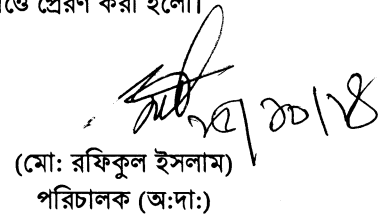 প্রেরণ করা হলো।
২৫/১০/২৪
(মো: রফিকুল ইসলাম)
পরিচালক (অ:দা:)